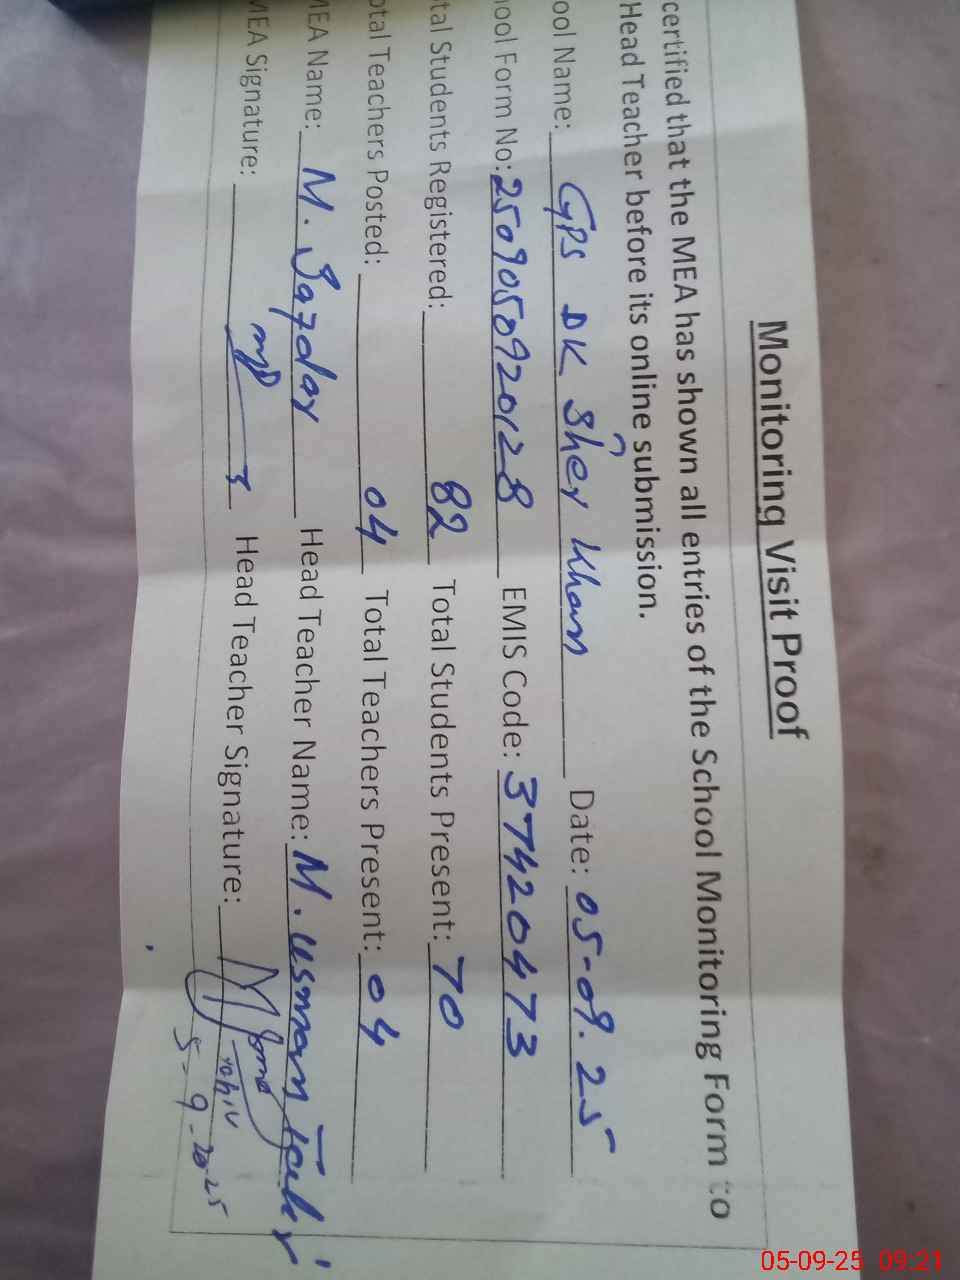 Monitoring Visit Proof
certified that the MEA has shown all entries of the School Monitoring Form to
Head Teacher before its online submission.
ool Name: GPS DK Sher Khan Date: 05-09.25
ool Form No: 2509050920128 EMIS Code: 37420473
tal Students Registered: 82 Total Students Present: 70
otal Teachers Posted: 04 Total Teachers Present: 04
MEA Name: M. Head Teacher Name: M. usman
MEA Signature: Head Teacher Signature:
5-9-2025
05-09-25 09:21